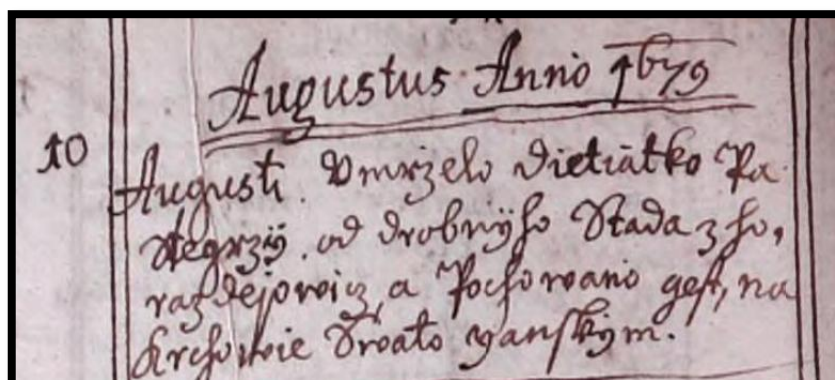 Augustus Anno 1679
10
Augusti. Vmrzelo dietiatko Pa
stegrzij. od drobnyho Stada z ho,
razdejowicz, a Pochowano gest, na
krchowie Swato yanskym.